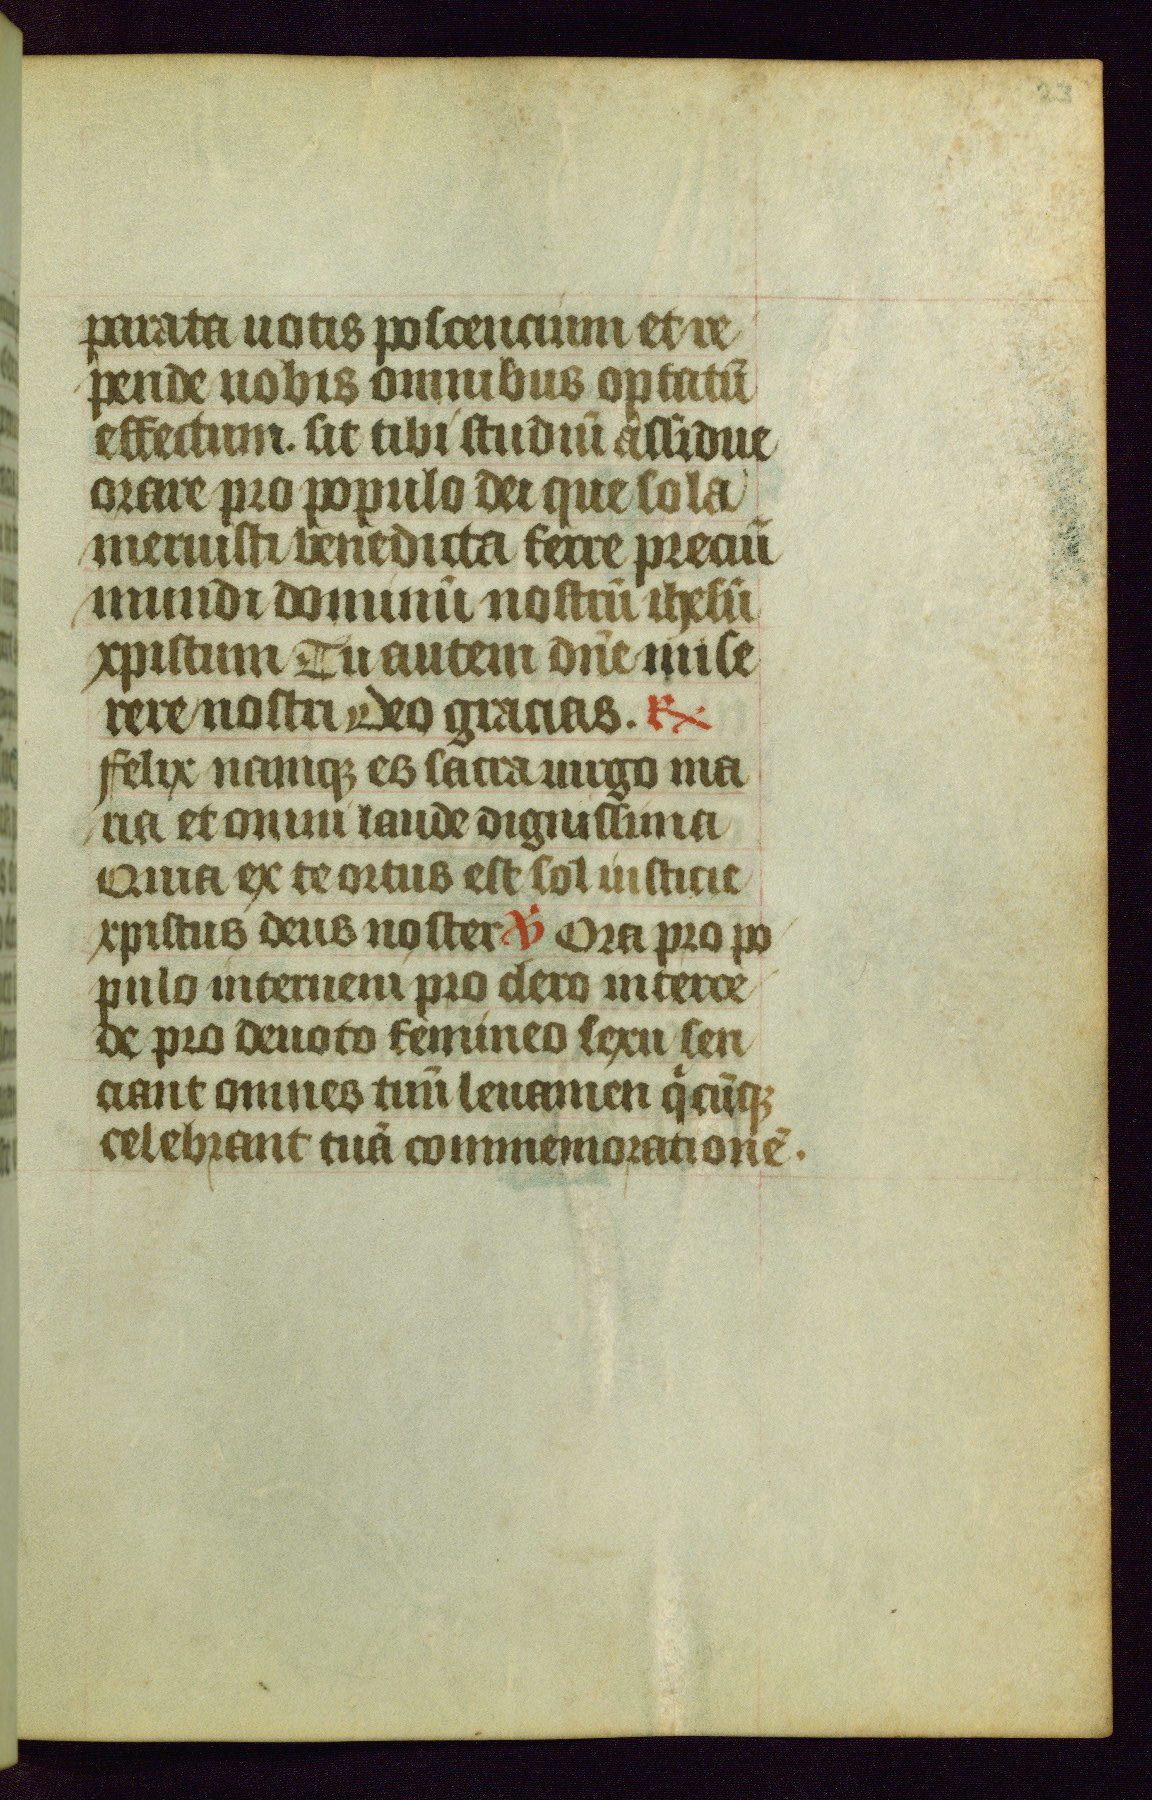 23
parata uotis poscencium et re
pende nobis omnibus optatū
effectum. sit tibi studiū assidue
orare pro populo dei que sola
meruisti benedicta ferre preciū
mundi dominū nostrū ihesū
xpistum Tu autem dn̄e mise
rere nostri Deo gracias. ℟
Felix namqꝫ es sacra uirgo ma
ria et omni laude dignissima
Quia ex te ortus est sol iusticie
xpistus deus noster ℣ Ora pro po
pulo interueni pro clero interce
de pro deuoto femineo sexu sen
ciant omnes tuū leuamen qͥcūqꝫ
celebrant tuā commemorationē.